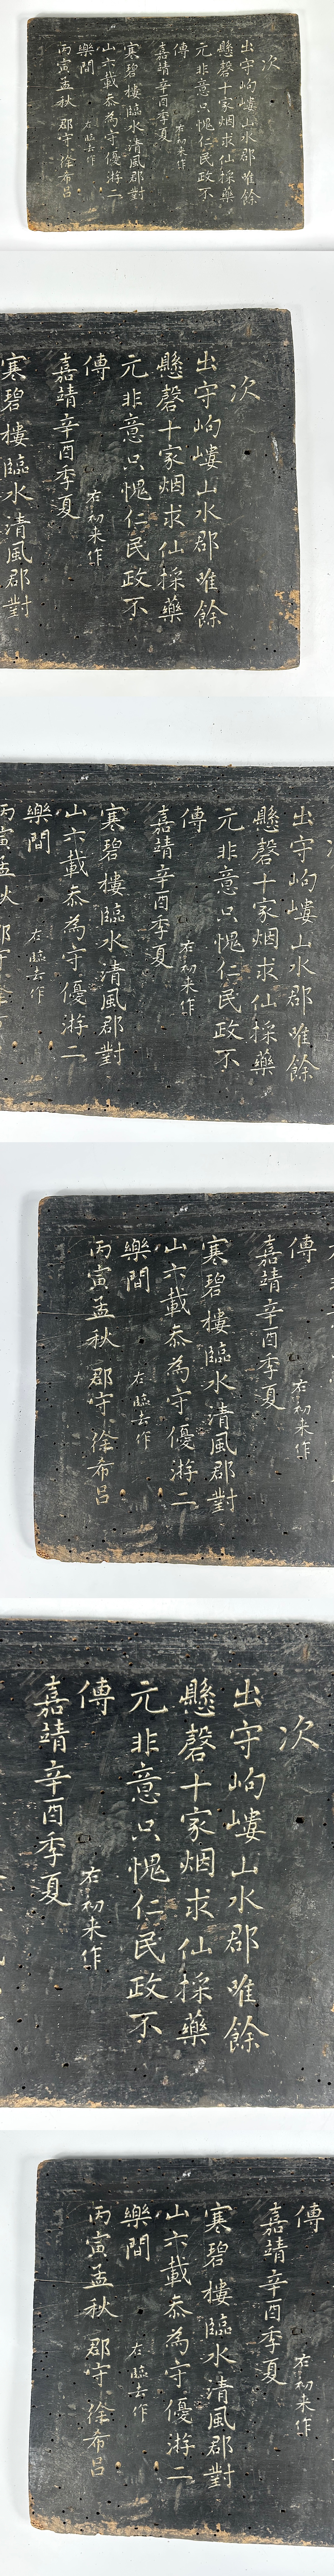 次
出守岣嶁山水郡唯餘
懸磬十家烟求仙採藥
元非意只愧仁民政不
傳
右初来作
嘉靖辛酉季夏
寒碧樓臨水清風郡對
山六載忝為守優游二
樂間
右臨去作
丙寅孟秋 郡守徐希呂